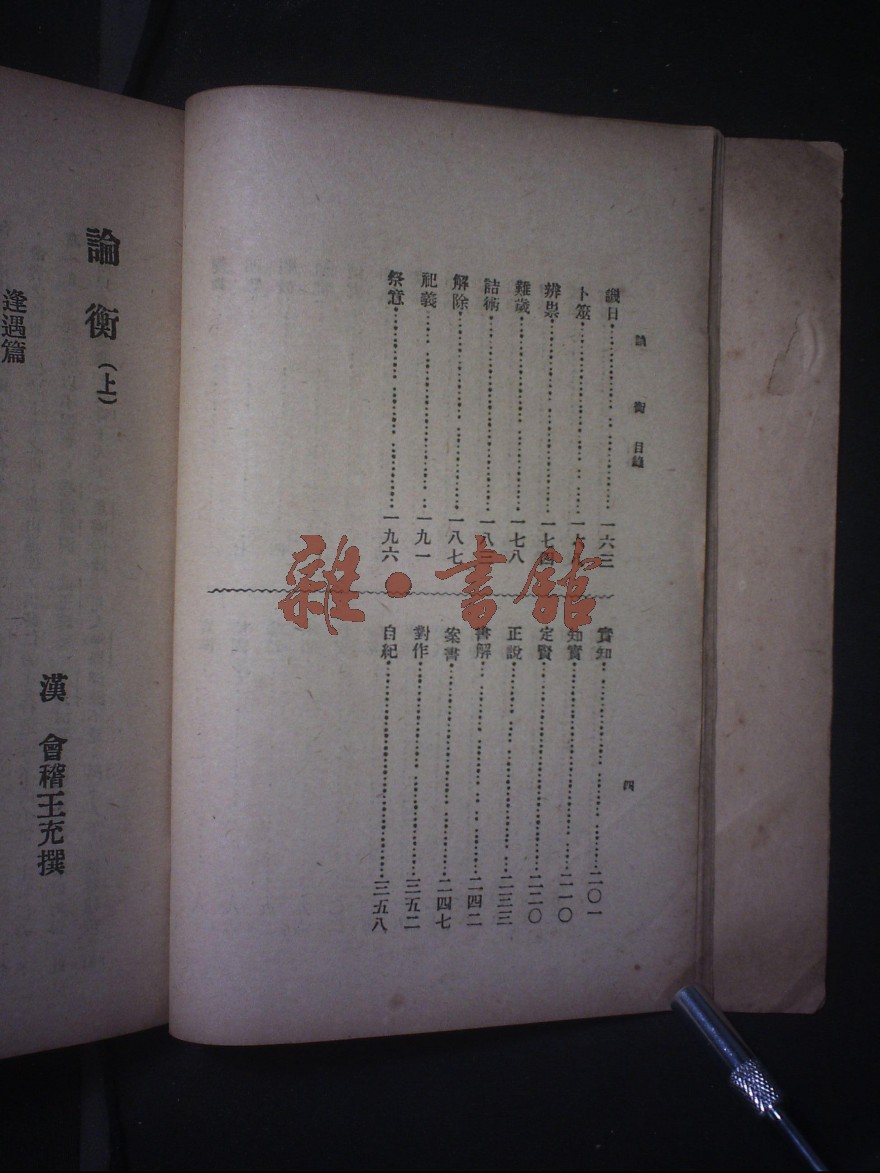 論衡 目錄
譏日⋯⋯一六三
卜筮⋯⋯一六
辨祟⋯⋯一七四
難歲⋯⋯一七八
詰術⋯⋯一八
解除⋯⋯一八七
祀義⋯⋯一九一
祭意⋯⋯一九六
實知⋯⋯二〇一
知實⋯⋯二一〇
定賢⋯⋯二二〇
正說⋯⋯二三三
書解⋯⋯二四二
案書⋯⋯二四七
對作⋯⋯三五二
自紀⋯⋯三五八
四
論衡(上)
漢 會稽王充撰
逢遇篇
雜·書館